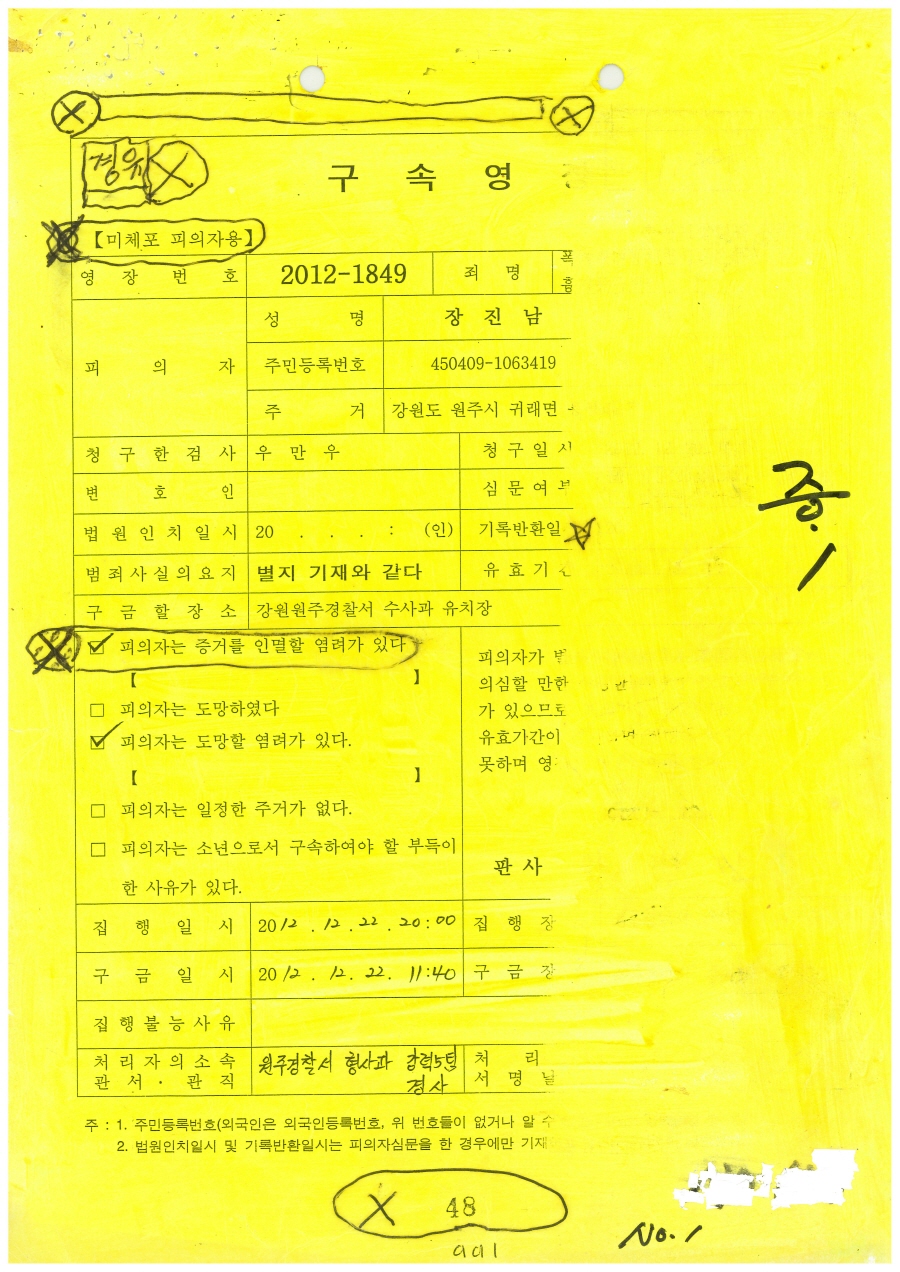 경유
구 속 영
【미체포 피의자용】
영 장 번 호 2012-1849 죄 명
피 의 자 성 명 장 진 남
주민등록번호 450409-1063419
주 거 강원도 원주시 귀래면
청 구 한 검 사 우 만 우 청 구 일 시
변 호 인 심 문 여 부
법 원 인 치 일 시 20 . . . : (인) 기록반환일
범 죄 사 실 의 요 지 별지 기재와 같다 유 효 기
구 금 할 장 소 강원원주경찰서 수사과 유치장
☑ 피의자는 증거를 인멸할 염려가 있다
【 】
☐ 피의자는 도망하였다
☑ 피의자는 도망할 염려가 있다.
【 】
☐ 피의자는 일정한 주거가 없다.
☐ 피의자는 소년으로서 구속하여야 할 부득이
한 사유가 있다.
피의자가
의심할 만한
가 있으므로
유효기간이
못하며 영
판 사
집 행 일 시 2012 . 12 . 22 . 20:00 집 행 장
구 금 일 시 2012 . 12 . 22. 11:40 구 금 장
집 행 불 능 사 유
처 리 자 의 소 속 원주경찰서 형사과 강력5팀 처 리
관 서 · 관 직 경사 서 명 날
주 : 1. 주민등록번호(외국인은 외국인등록번호, 위 번호들이 없거나 알 수
2. 법원인치일시 및 기록반환일시는 피의자심문을 한 경우에만 기재
증.
1
48
001
No. 1